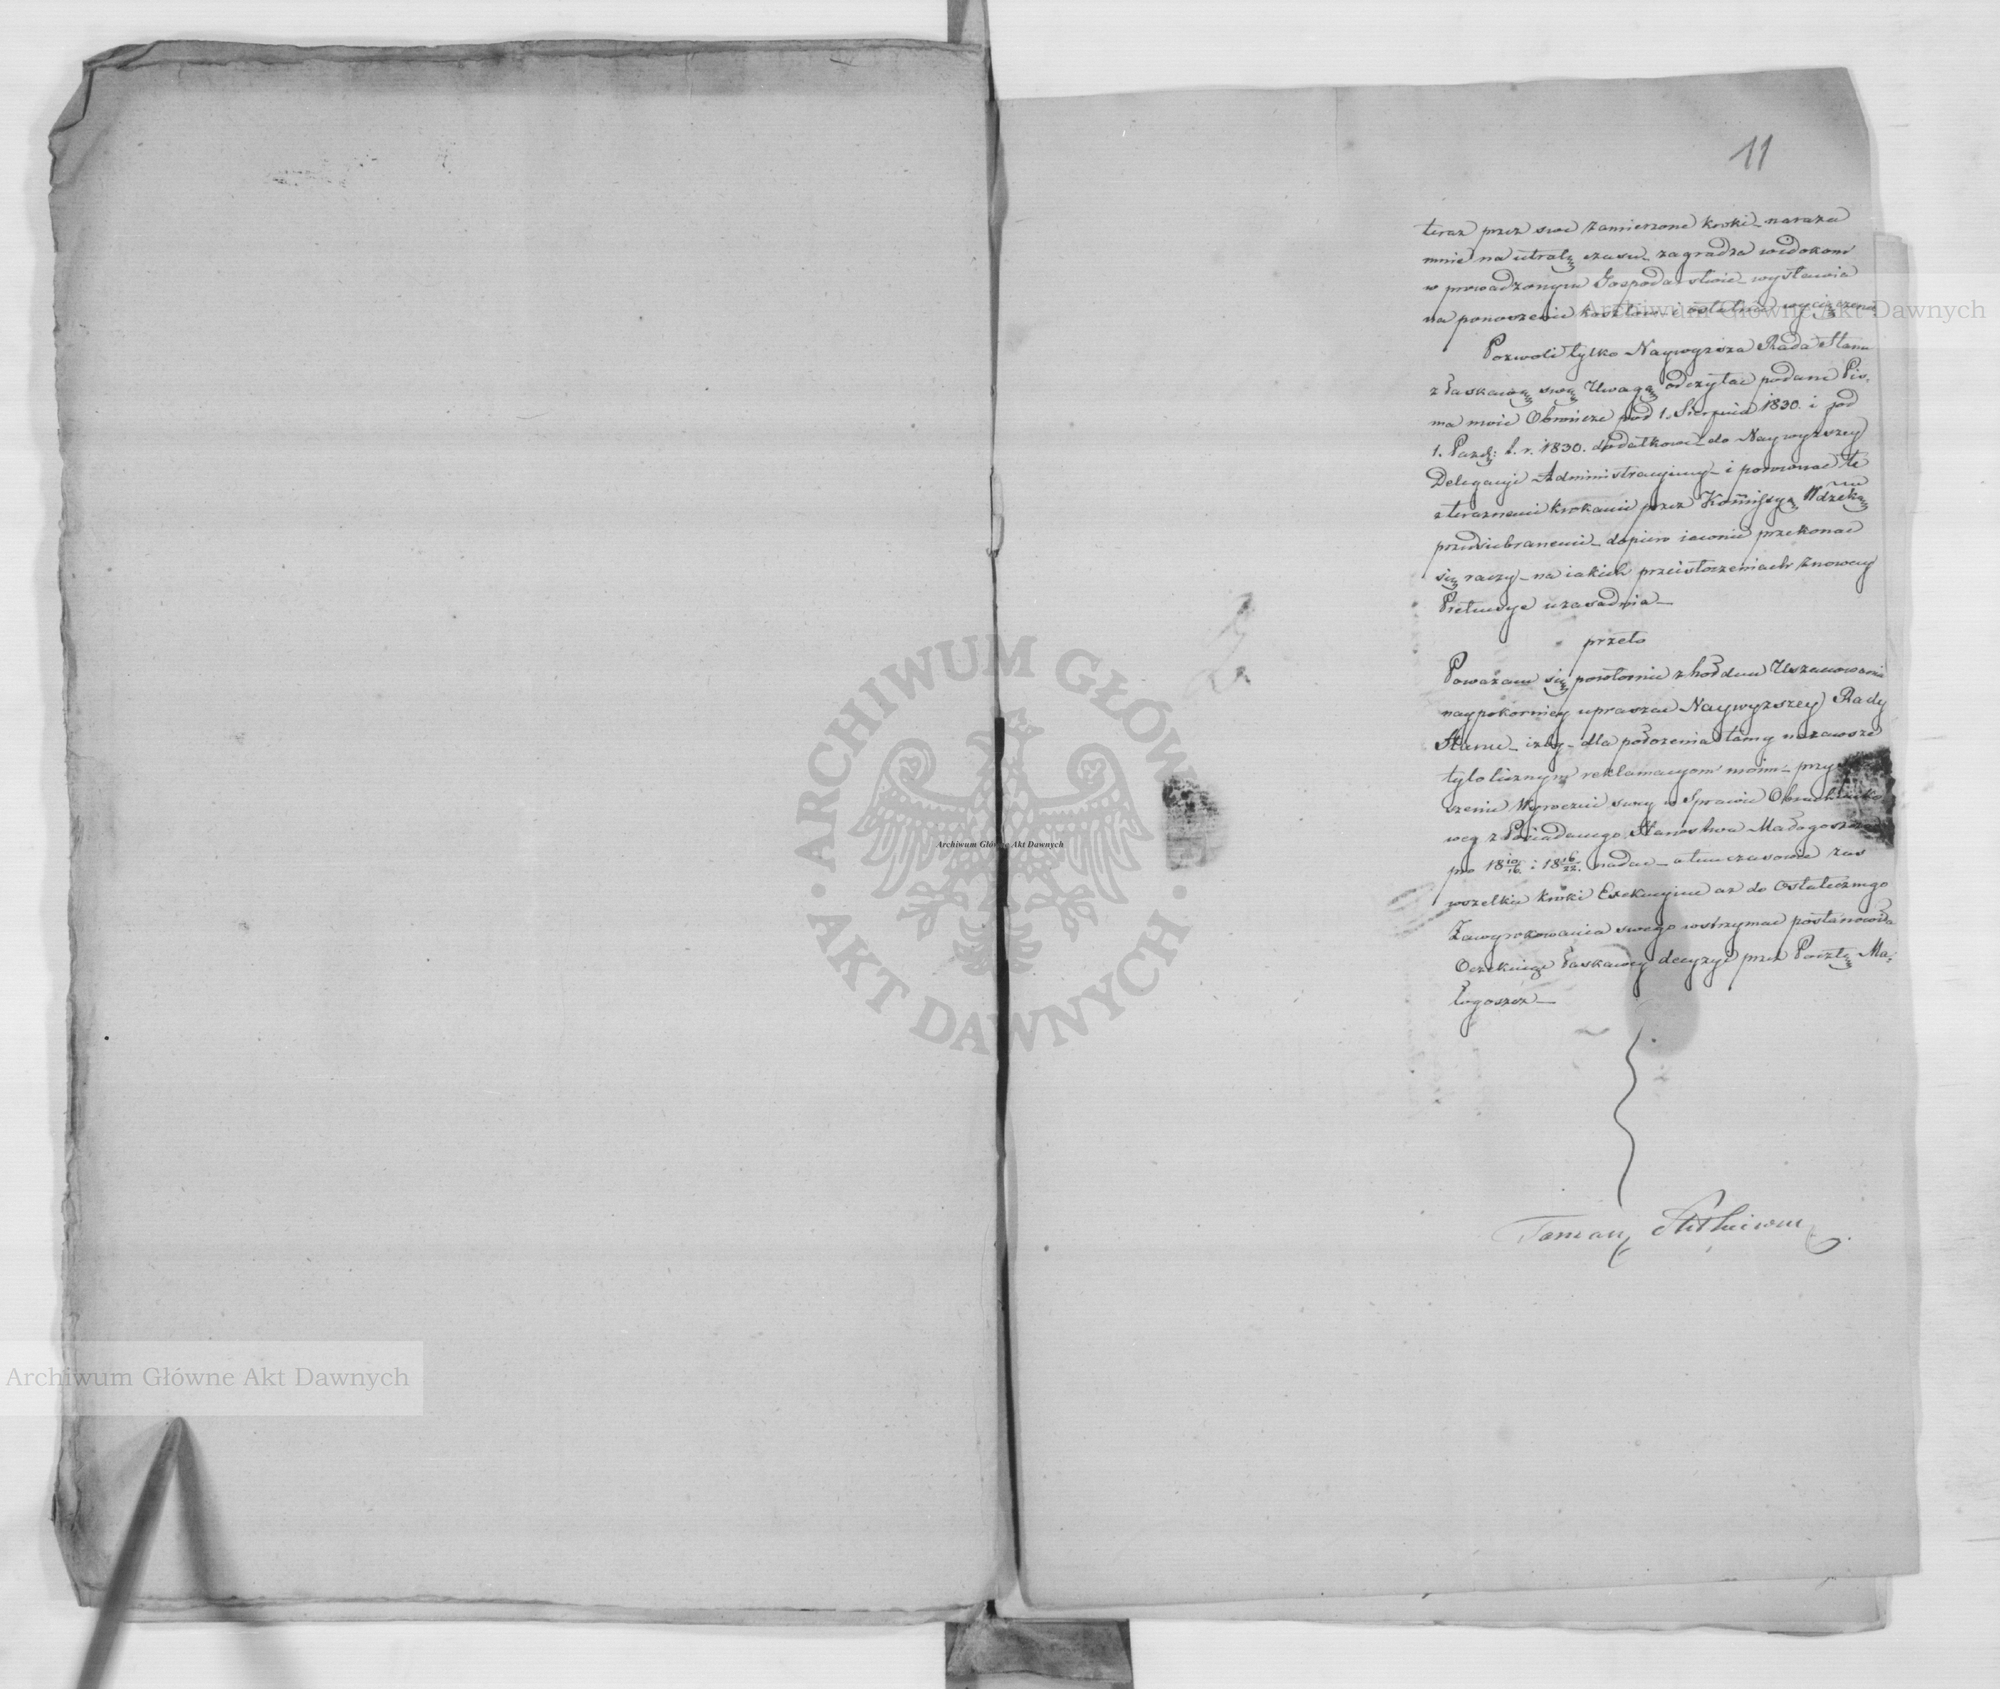 11
teraz przez swe zamierzone kroki – naraża
mnie na utratę czasu – zagradza widokom
w prowadzonym Gospodarstwie – wystawia
na ponoszenie kosztów i ostatnie wyciężenie
Pozwoli tylko Naywyższa Rada Stanu
z łaskawą swą Uwagą odczytać podane Pis,
ma moie Obrończe pod 1. Sierpnia 1830. i pod
1. Paźdź: b. r. 1830. dodatkowe – do Naywyższey
Delegacyi Administracyiney – i porównać te
z teraznemi krokami przez Kom̃issyą Wdzką
przedsiębranemi – dopiero iawnie przekonać
się raczy – na iakich przeistoczeniach znowey
Pretensye uzasadnia –
przeto
Poważam się powtornie z hołdem Uszanowania
naypokorniey upraszać Naywyższey Rady
Stanu – iżby – dla położenia tamy nazawsze
tylolicznym reklamacyom moim – przy
szenie Wyroczni swey w Sprawie Obrachunko
wey z Posiadanego Starostwa Małogoszcz
pro 18 10/16. i 18 16/22. nadać – a tymczasowie zaś
wszelkie kroki Exekucyine aż do Ostatecznego
Zawyrokowania swego wstrzymać postanowiła
Oczekuię łaskawey decyzyi przez Pocztę Ma,
łogoszcz –
Tomasz
Archiwum Główne Akt Dawnych
Archiwum Główne Akt Dawnych
Archiwum Główne Akt Dawnych
ARCHIWUM GŁÓWNE · AKT DAWNYCH ·